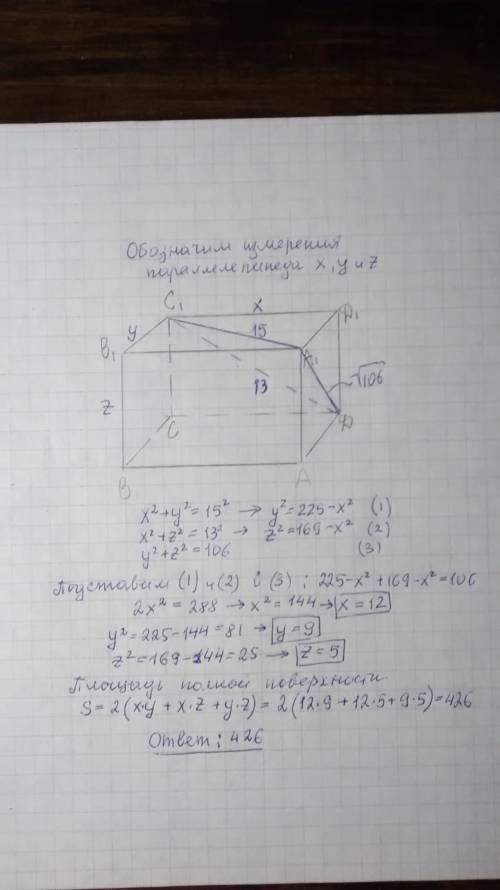 Обозначим измерения
параллелепипеда x, y и z
C₁ x D₁
y 15
B₁ A₁
13 √106
z
C D
B A
x²+y²=15² → y²=225-x² (1)
x²+z²=13² → z²=169-x² (2)
y²+z²=106 (3)
Подставим (1) и (2) в (3) : 225-x²+169-x²=106
2x²=288 → x²=144 → x=12
y²=225-144=81 → y=9
z²=169-144=25 → z=5
Площадь полной поверхности
S=2(x·y+x·z+y·z)=2(12·9+12·5+9·5)=426
Ответ: 426